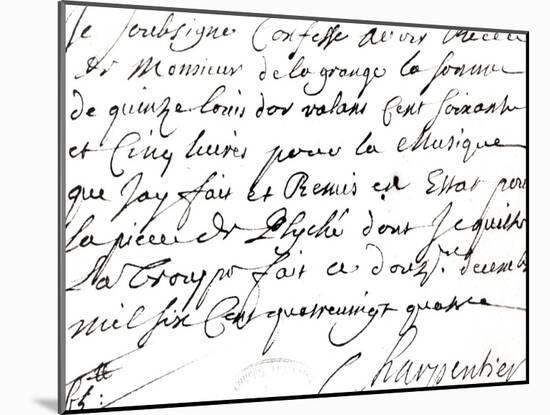 Je soubsigne Confesse avoir Receu
de Monsieur de la grange la somme
de quinze louis dor valans Cent soixante
et Cinq livres pour la Musique
que Jay fait et Remis en Estat pour
la piece de Psyché dont Je quitte
La Trouppe fait ce douze. decembre
mil six Cent quatre vingt quatre
Charpentier